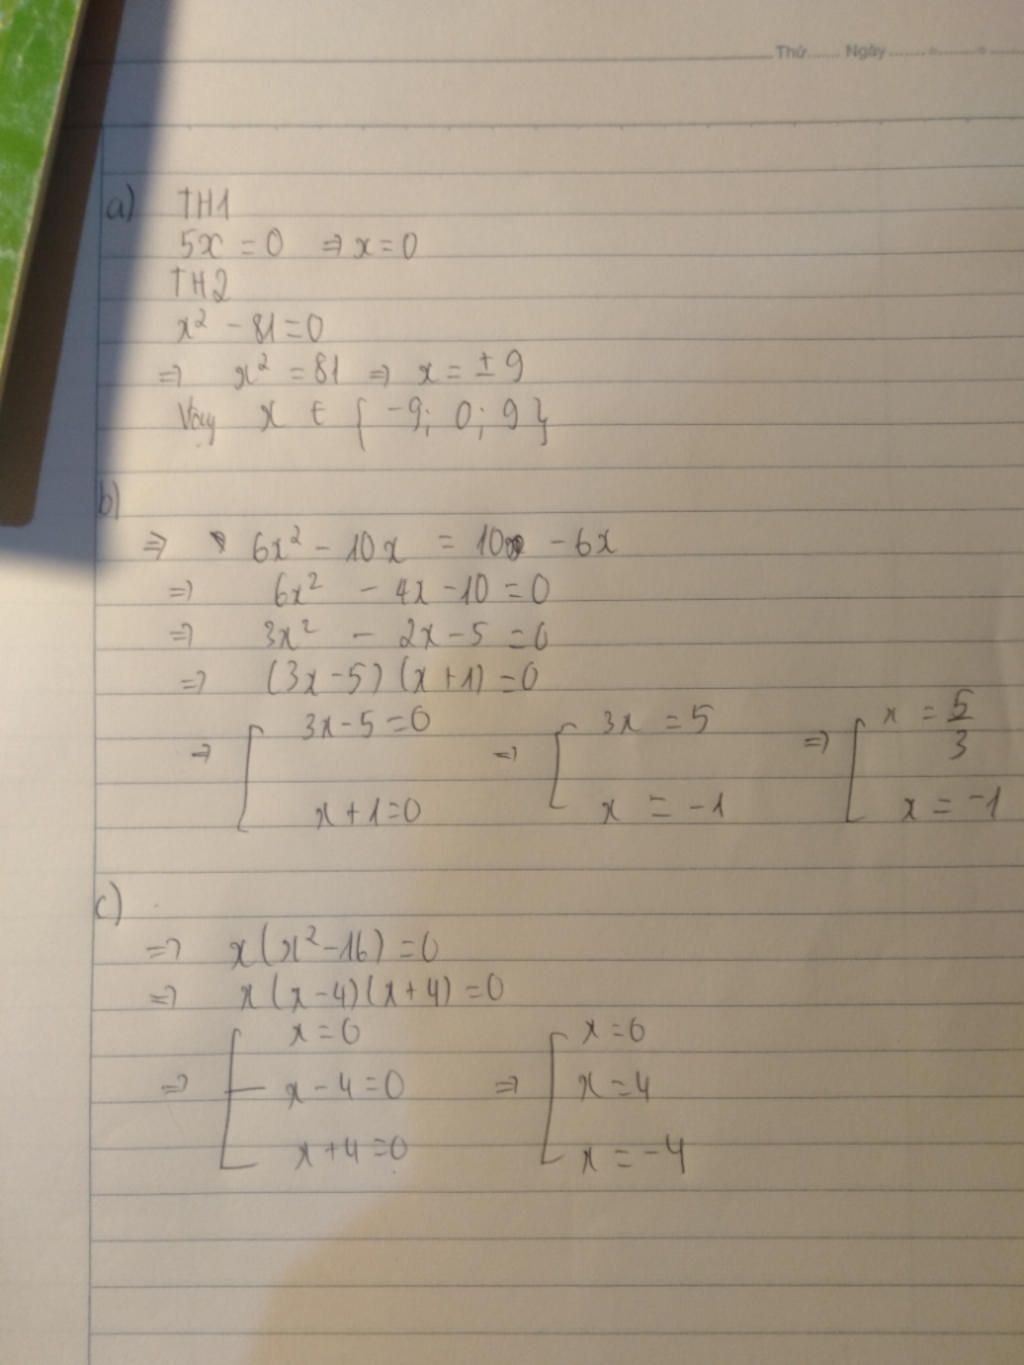 Thứ...... Ngày
a) TH1
5x = 0 ⇒ x = 0
TH2
x² - 81 = 0
⇒ x² = 81 ⇒ x = ± 9
Vậy x ∈ { -9; 0; 9 }
b)
⇒ 6x² - 10x = 10 - 6x
⇒ 6x² - 4x - 10 = 0
⇒ 3x² - 2x - 5 = 0
⇒ (3x - 5) (x + 1) = 0
⇒ [ 3x - 5 = 0 ⇒ [ 3x = 5 ⇒ [ x = 5/3
x + 1 = 0 x = -1 x = -1
c)
⇒ x(x² - 16) = 0
⇒ x(x - 4)(x + 4) = 0
x = 0 x = 0
⇒ [ x - 4 = 0 ⇒ [ x = 4
x + 4 = 0 x = -4